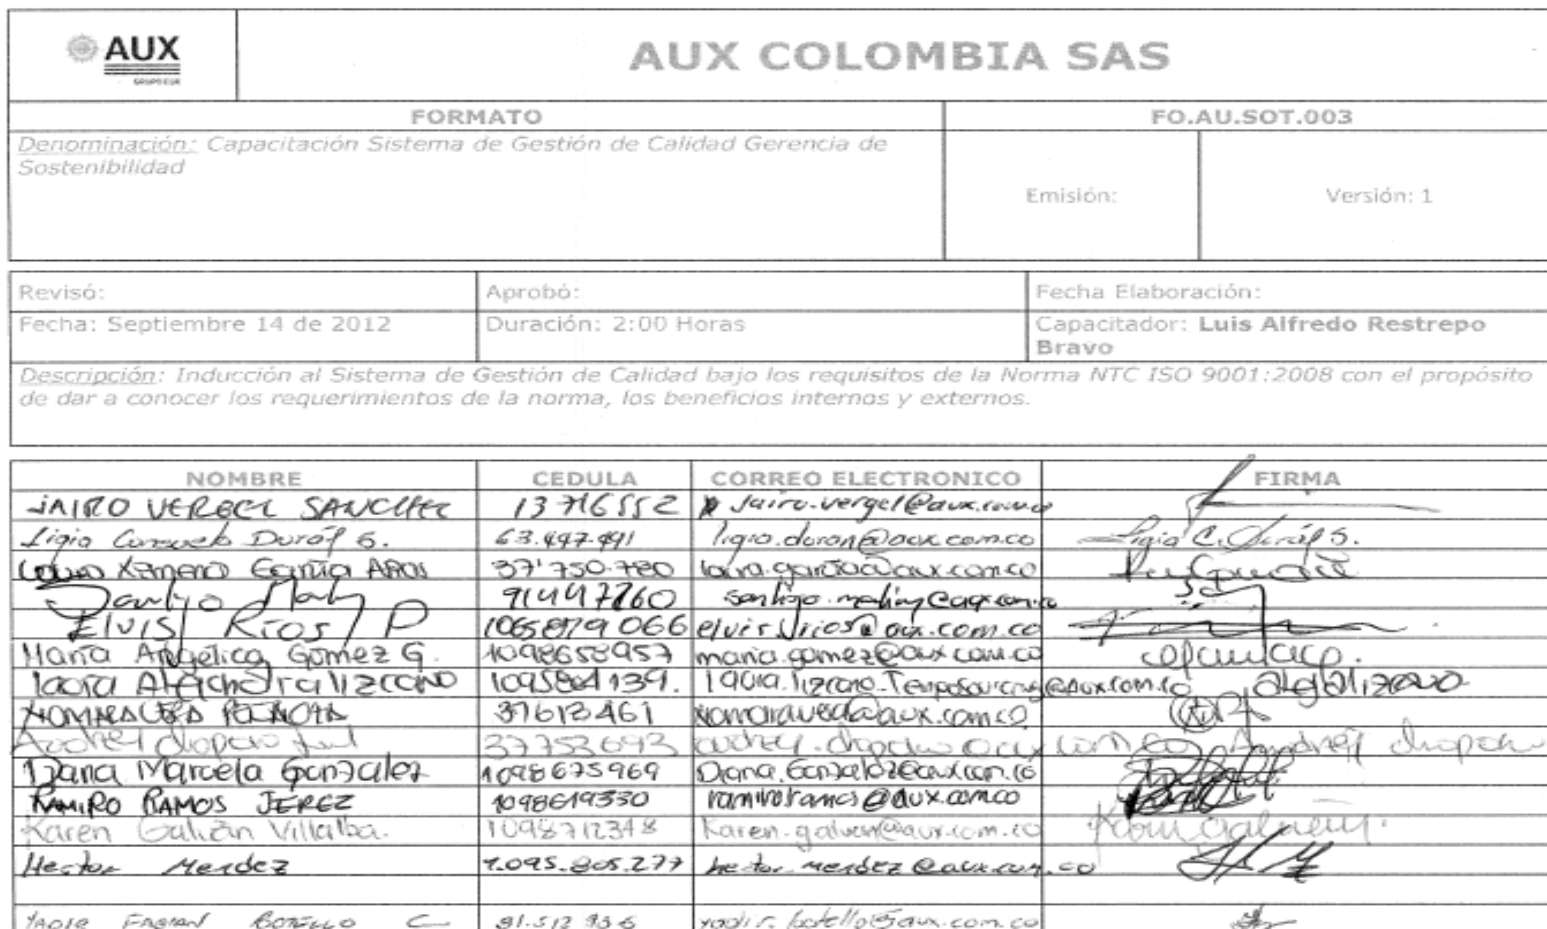 AUX
GRUPO EBX
AUX COLOMBIA SAS
FORMATO FO.AU.SOT.003
Denominación: Capacitación Sistema de Gestión de Calidad Gerencia de
Sostenibilidad
Emisión: Versión: 1
Revisó: Aprobó: Fecha Elaboración:
Fecha: Septiembre 14 de 2012 Duración: 2:00 Horas Capacitador: Luis Alfredo Restrepo
Bravo
Descripción: Inducción al Sistema de Gestión de Calidad bajo los requisitos de la Norma NTC ISO 9001:2008 con el propósito
de dar a conocer los requerimientos de la norma, los beneficios internos y externos.
NOMBRE CEDULA CORREO ELECTRONICO FIRMA
JAIRO VERGEL SANCHEZ 13716552 Jairo.vergel@aux.com.co
Ligia Consuelo Durán S. 63.497.491 ligia.duran@aux.com.co Ligia C. Durán S.
Ximena García 37'750.780 laura.garcia@aux.com.co
91447760
Elvis Ríos P elvis.rios@aux.com.co
Maria Angelica Gomez G. 1098658957 maria.gomez@aux.com.co
Laura Alejandra lizcano
XIOMARA 37613461 xiomara.uveda@aux.com.co
Audrey 37753693
Diana Marcela González 1098675969 Diana.Gonzalez@aux.com.co
RAMIRO RAMOS JEREZ 1098619330 ramiro.ramos@aux.com.co
Karen Galván Villalba. 1098712348 Karen.galvan@aux.com.co
Hector Mendez 1.095.805.277 hector.mendez@aux.com.co
FABIAN BOTELLO C 91.512.936 yadir.botello@aux.com.co